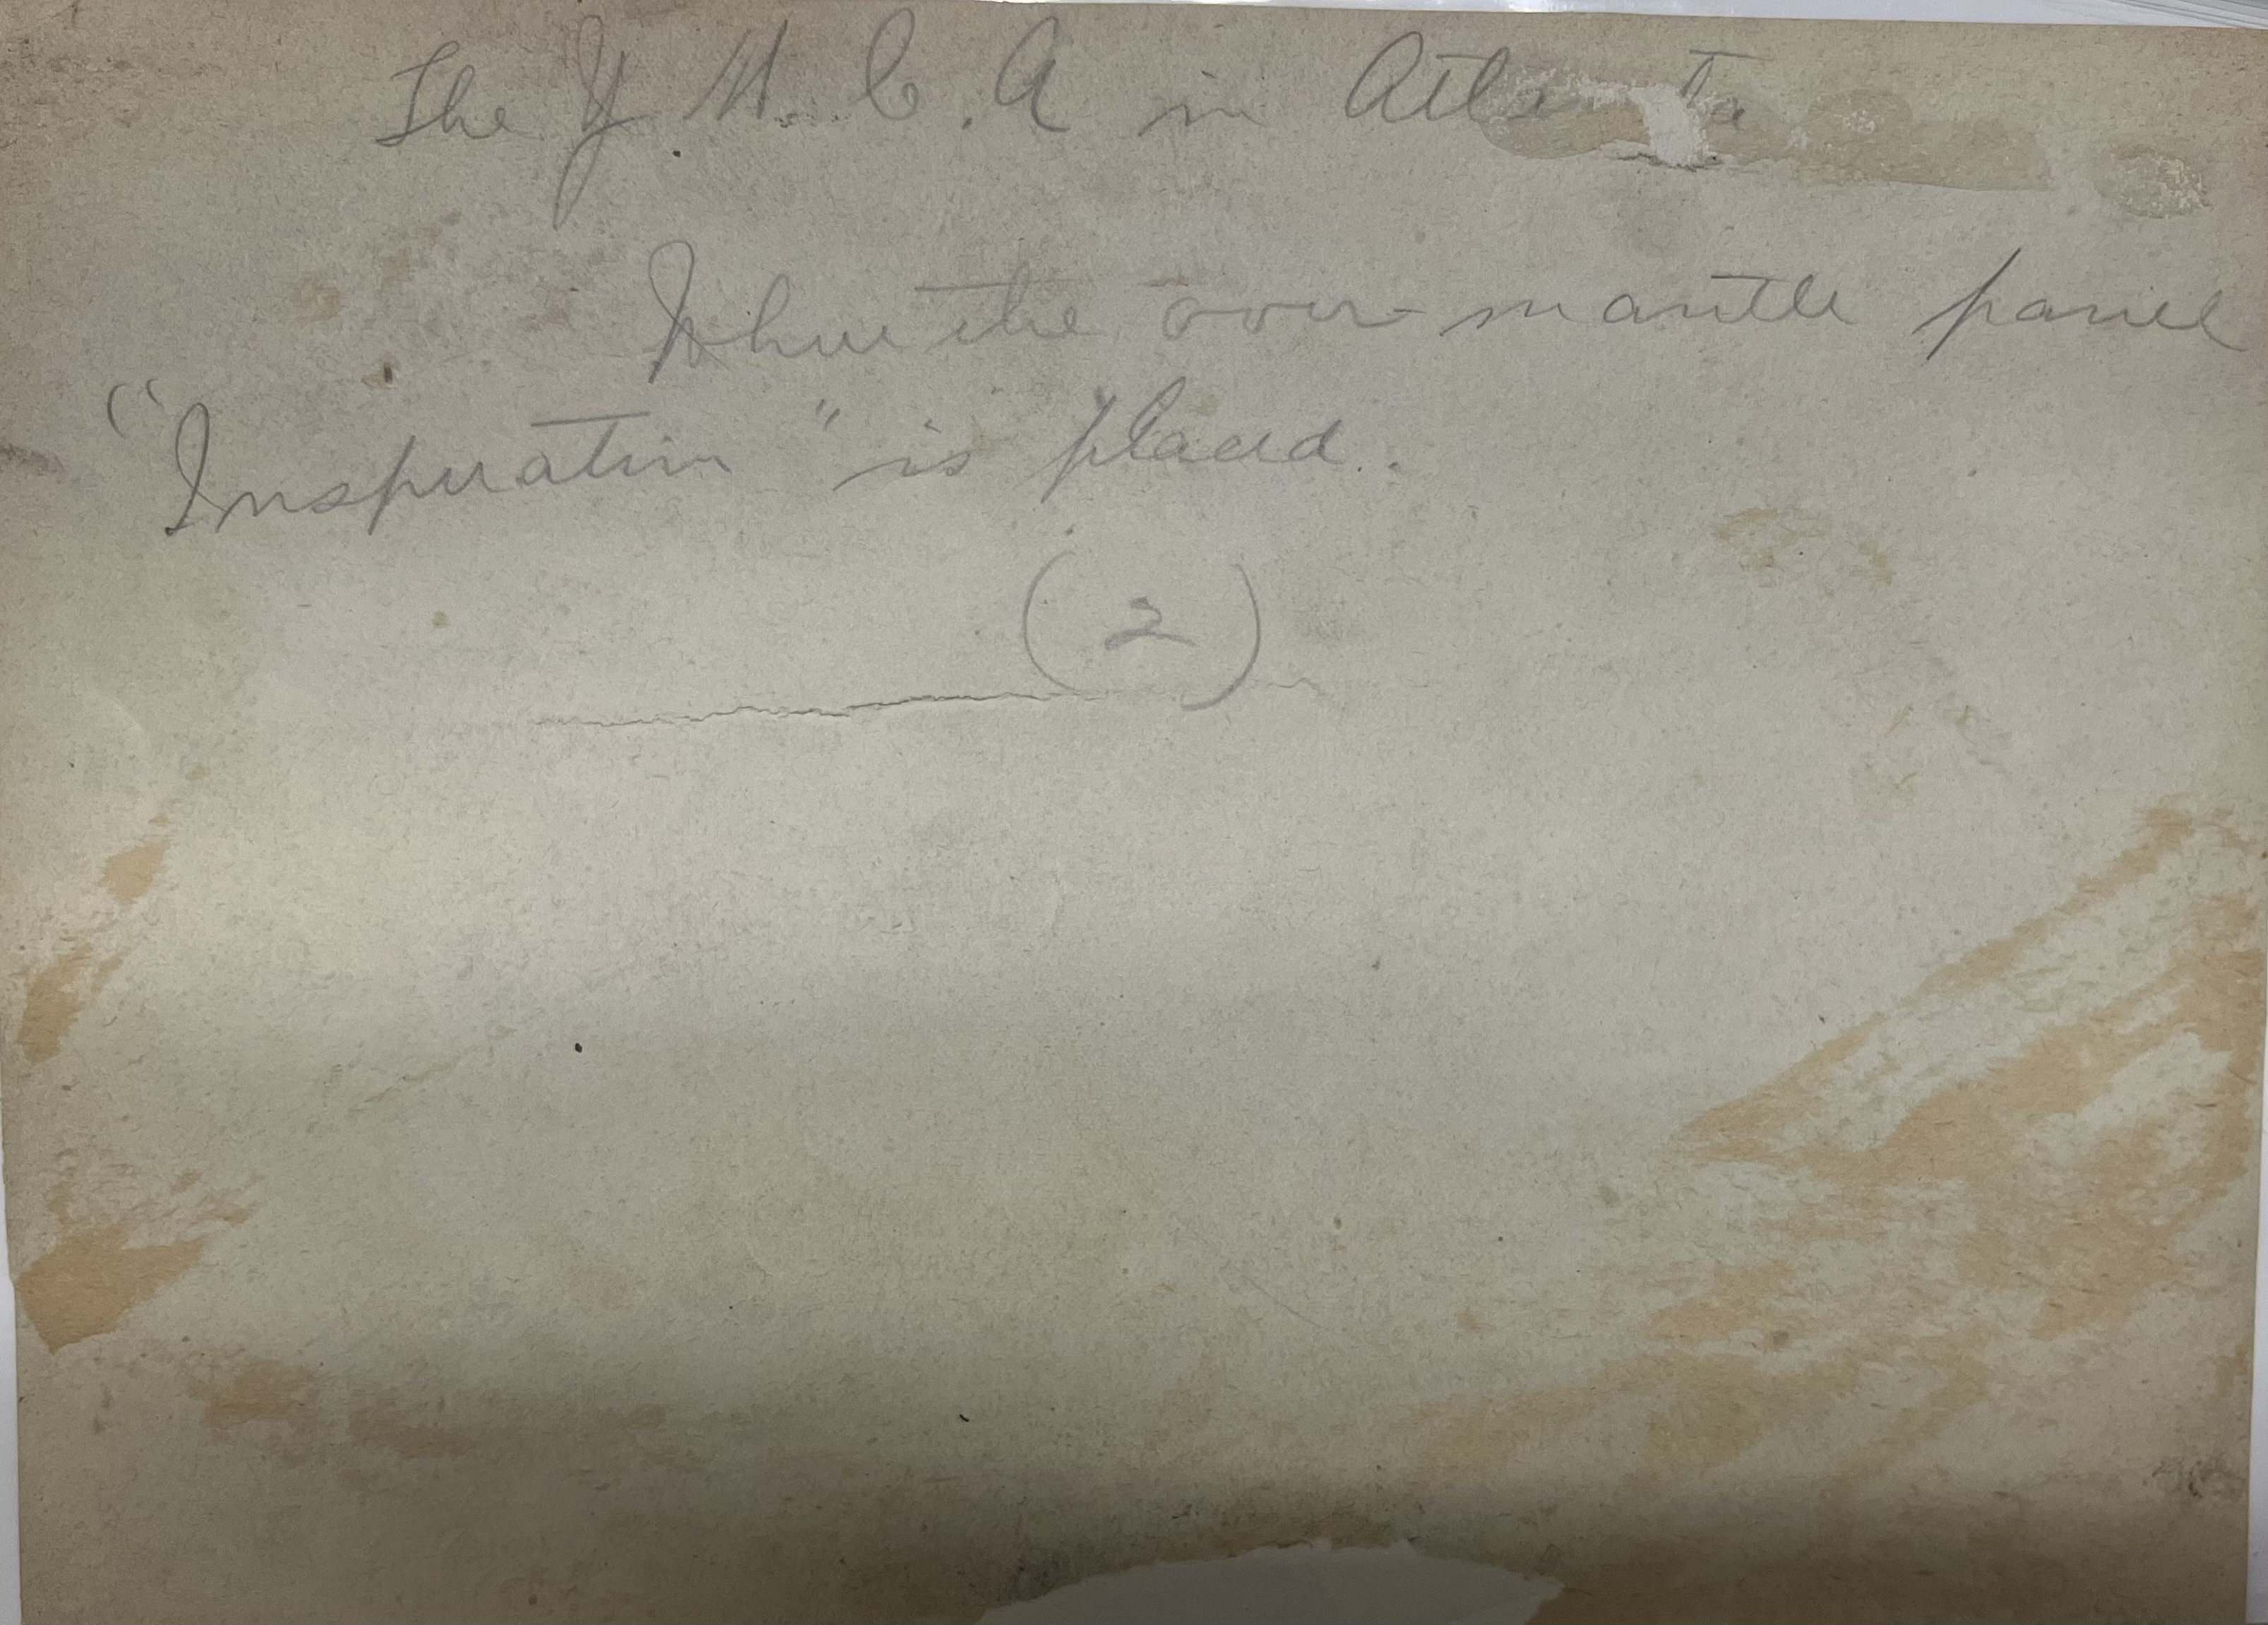 The Y. M. C. A in Atlanta
Where the over-mantle panel
"Inspiration" is placed.
(2)